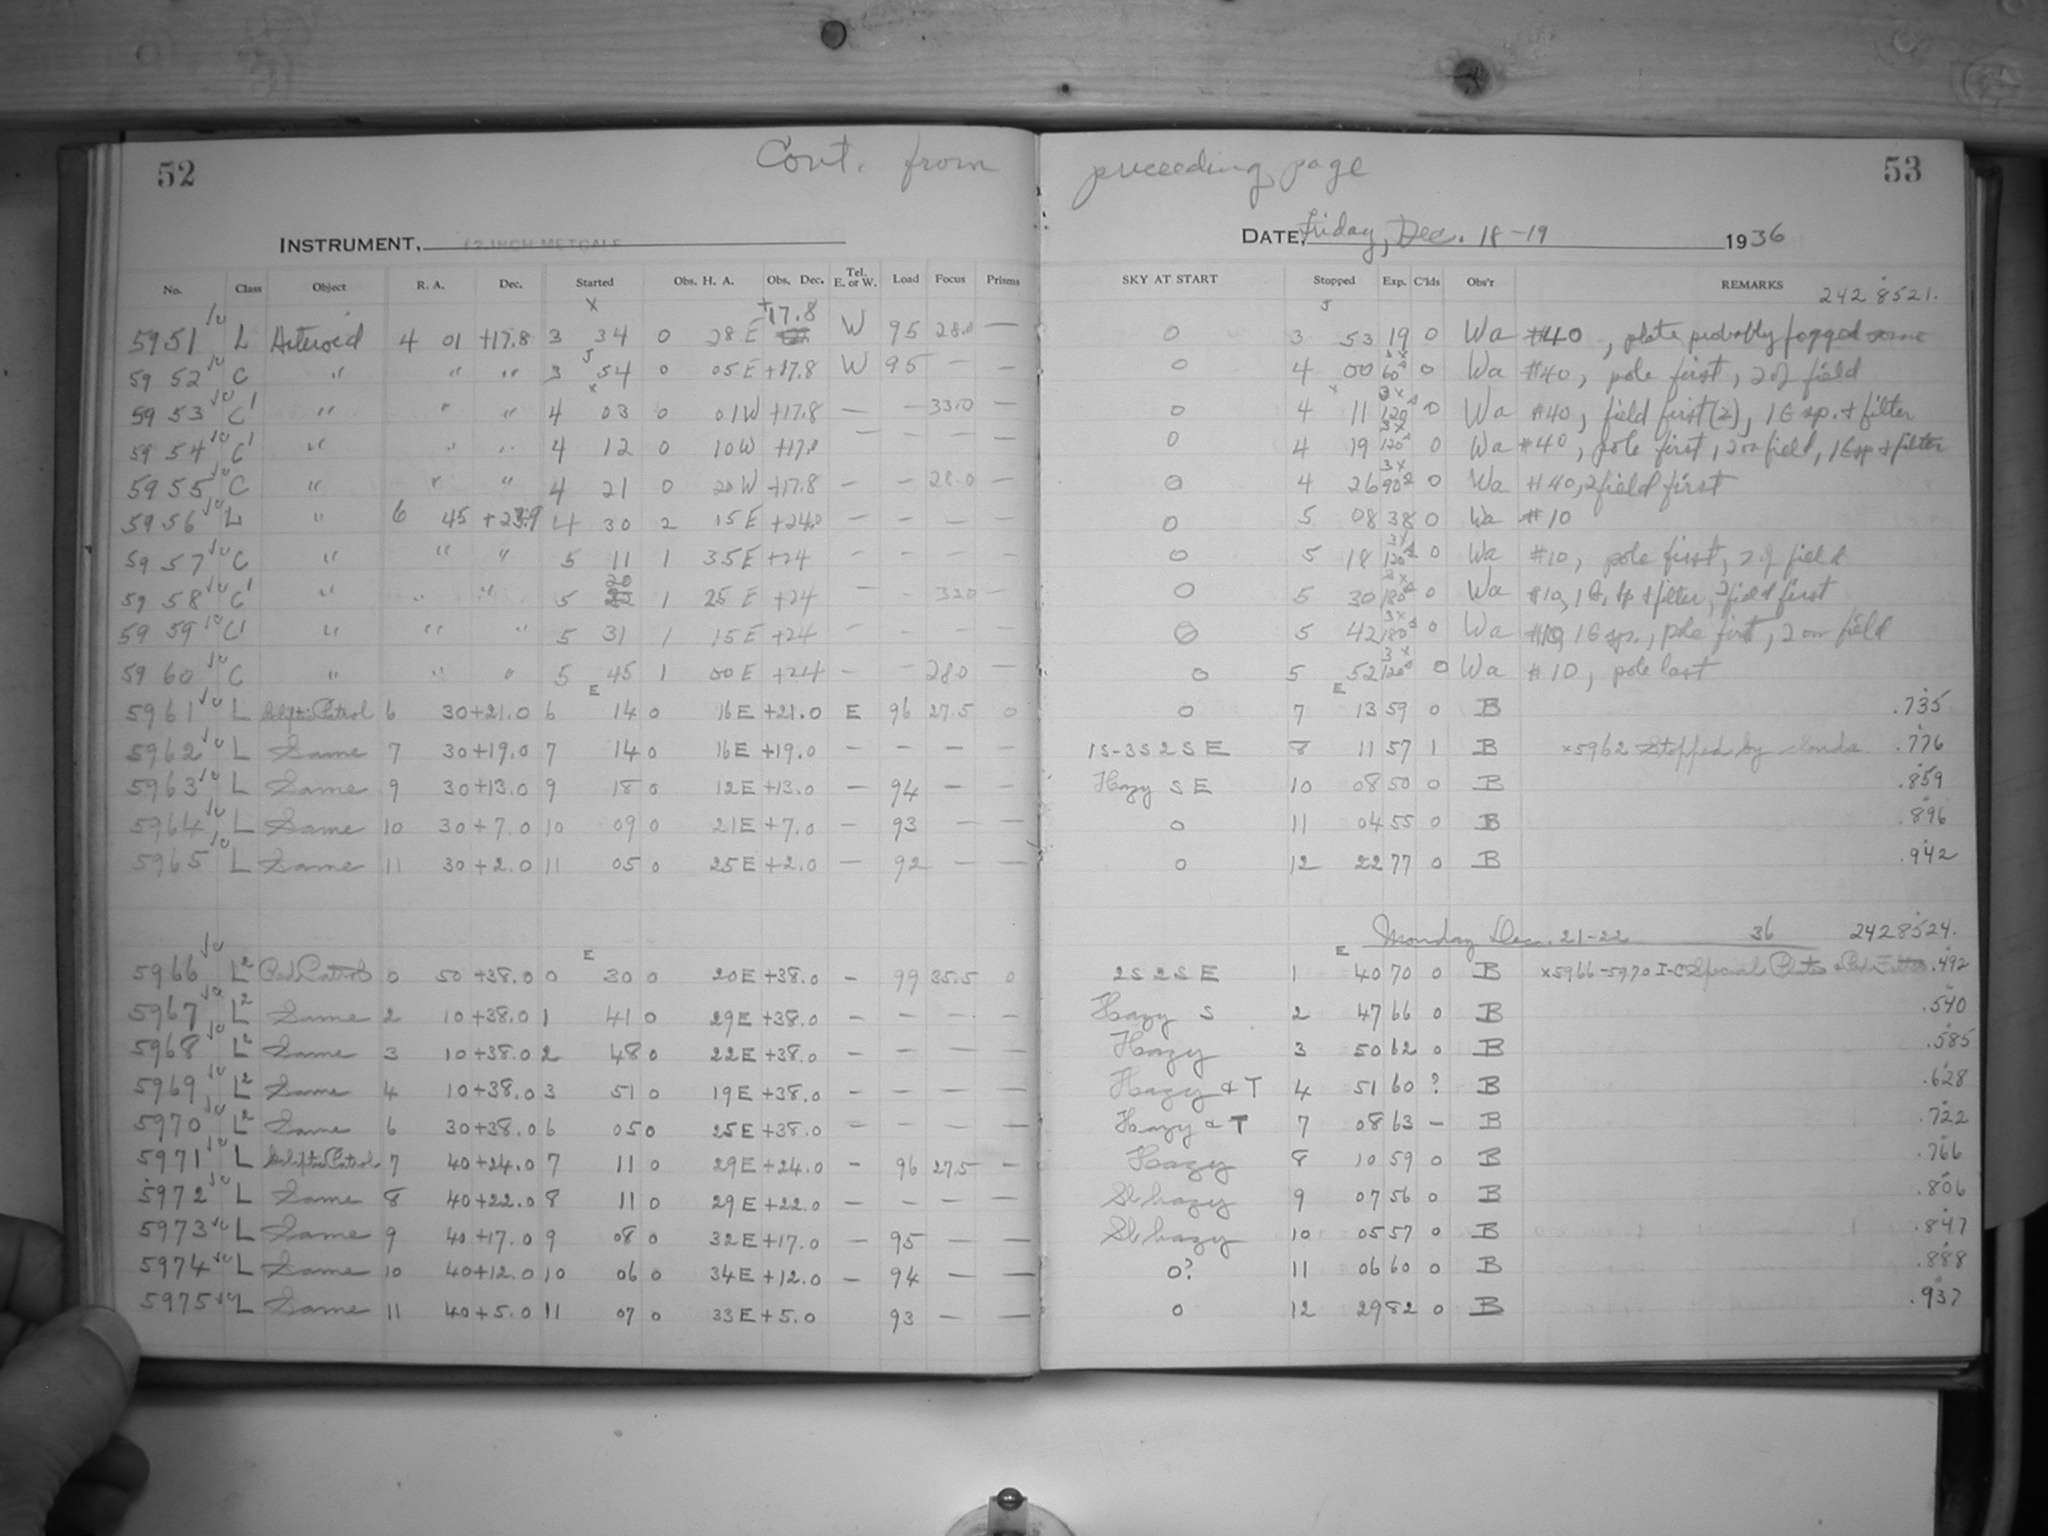 52 Cont. from preceeding page 53
INSTRUMENT, 12-INCH METCALF DATE, Friday, Dec. 18-19 1936
No. Class Object R. A. Dec. Started Obs. H. A. Obs. Dec. Tel. E. or W. Load Focus Prisms SKY AT START Stopped Exp. C'lds Obs'r REMARKS 242 8521.
5951 L Asteroid 4 01 +17.8 3 34 0 28 E +17.8 W 95 28.0 — 0 3 53 19 0 Wa #40, plate probably fogged some
5952 C " " " 3 54 0 05 E +17.8 W 95 — — 0 4 00 3x 60s 0 Wa #40, pole first, 2 of field
5953 C' " " " 4 03 0 01 W +17.8 — — 33.0 — 0 4 11 3x 120s 0 Wa #40, field first (2), 1G sp. & filter
5954 C' " " " 4 12 0 10 W +17.8 — — — — 0 4 19 3x 120s 0 Wa #40, pole first, 2 on field, 1G sp & filter
5955 C " " " 4 21 0 20 W +17.8 — — 28.0 — 0 4 26 3x 90s 0 Wa #40, 2 field first
5956 L " 6 45 +23.9 4 30 2 15 E +24.0 — — — — 0 5 08 38 0 Wa #10
5957 C " " " 5 11 1 35 E +24 — — — — 0 5 18 3x 120s 0 Wa #10, pole first, 2 of field
5958 C' " " " 5 20 1 25 E +24 — — 32.0 — 0 5 30 3x 180s 0 Wa #10, 1G. sp & filter, 2 field first
5959 C' " " " 5 31 1 15 E +24 — — — — 0 5 42 3x 180s 0 Wa #10, 1G sp., pole first, 2 on field
5960 C " " " 5 45 1 00 E +24 — — 28.0 — 0 5 52 3x 120s 0 Wa #10, pole last
5961 L Ecliptic Patrol 6 30 +21.0 6 E 14 0 16 E +21.0 E 96 27.5 0 0 7 E 13 59 0 B .735
5962 L Same 7 30 +19.0 7 14 0 16 E +19.0 — — — — 1S-3S 2SE 8 11 57 1 B x5962 Stopped by clouds. .776
5963 L Same 9 30 +13.0 9 18 0 12 E +13.0 — 94 — — Hazy SE 10 08 50 0 B .859
5964 L Same 10 30 +7.0 10 09 0 21 E +7.0 — 93 — — 0 11 04 55 0 B .896
5965 L Same 11 30 +2.0 11 05 0 25 E +2.0 — 92 — — 0 12 22 77 0 B .942
Monday Dec. 21-22 36 2428524.
5966 L2 Red Patrol 0 50 +38.0 0 E 30 0 20 E +38.0 — 99 35.5 0 2S 2SE 1 E 40 70 0 B x5966-5970 I-C Special Plates & Red Filter .492
5967 L2 Same 2 10 +38.0 1 41 0 29 E +38.0 — — — — Hazy S 2 47 66 0 B .540
5968 L2 Same 3 10 +38.0 2 48 0 22 E +38.0 — — — — Hazy 3 50 62 0 B .585
5969 L2 Same 4 10 +38.0 3 51 0 19 E +38.0 — — — — Hazy & T 4 51 60 ? B .628
5970 L2 Same 6 30 +38.0 6 05 0 25 E +38.0 — — — — Hazy & T 7 08 63 — B .722
5971 L Ecliptic Patrol 7 40 +24.0 7 11 0 29 E +24.0 — 96 27.5 — Hazy 8 10 59 0 B .766
5972 L Same 8 40 +22.0 8 11 0 29 E +22.0 — — — — Sl hazy 9 07 56 0 B .806
5973 L Same 9 40 +17.0 9 08 0 32 E +17.0 — 95 — — Sl hazy 10 05 57 0 B .847
5974 L Same 10 40 +12.0 10 06 0 34 E +12.0 — 94 — — 0? 11 06 60 0 B .888
5975 L Same 11 40 +5.0 11 07 0 33 E +5.0 93 — — 0 12 29 82 0 B .937